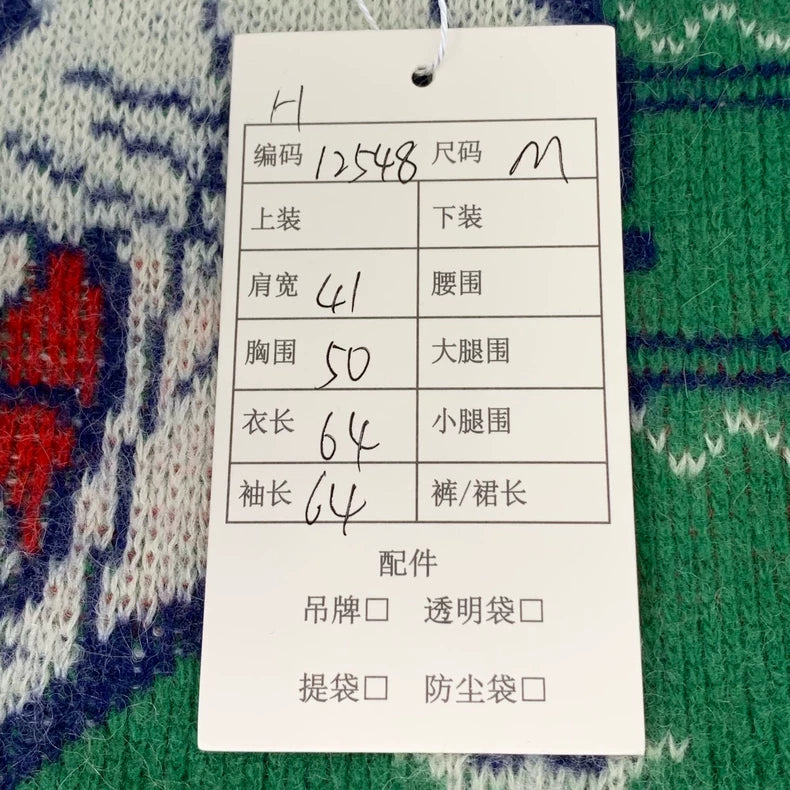 H
编码 12548 尺码 M
上装 下装
肩宽 41 腰围
胸围 50 大腿围
衣长 64 小腿围
袖长 64 裤/裙长
配件
吊牌□ 透明袋□
提袋□ 防尘袋□